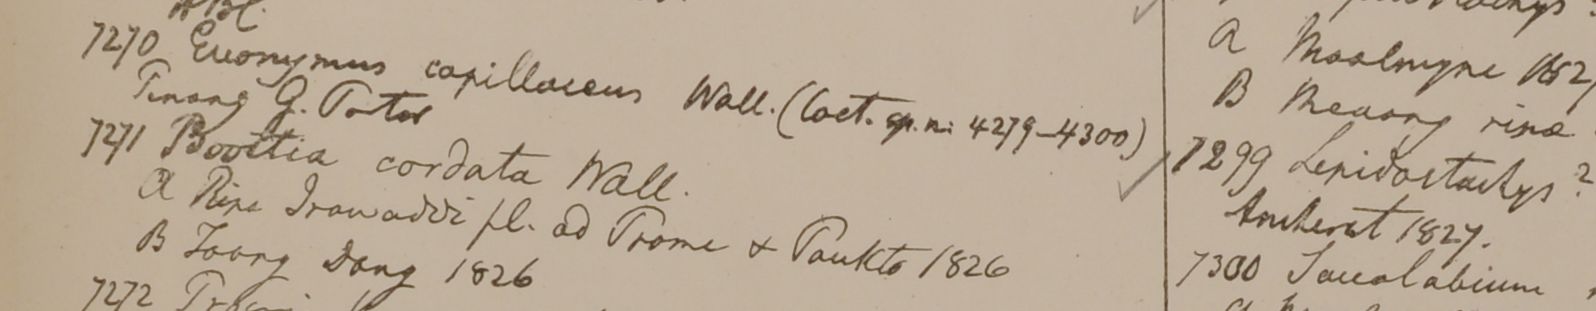 HBC.
7270 Euonymus capillaceus Wall. (Coct. sp. n: 4279–4300)
Pinang G. Porter
7271 Boottia cordata Wall.
A Ripa Irawaddi fl. ad Prome & Paukto 1826
B Toong Dong 1826
7272
A Moalmyne 1827
B ripa
7299 Lepidostachys?
Amherst 1827.
7300 Saccolabium